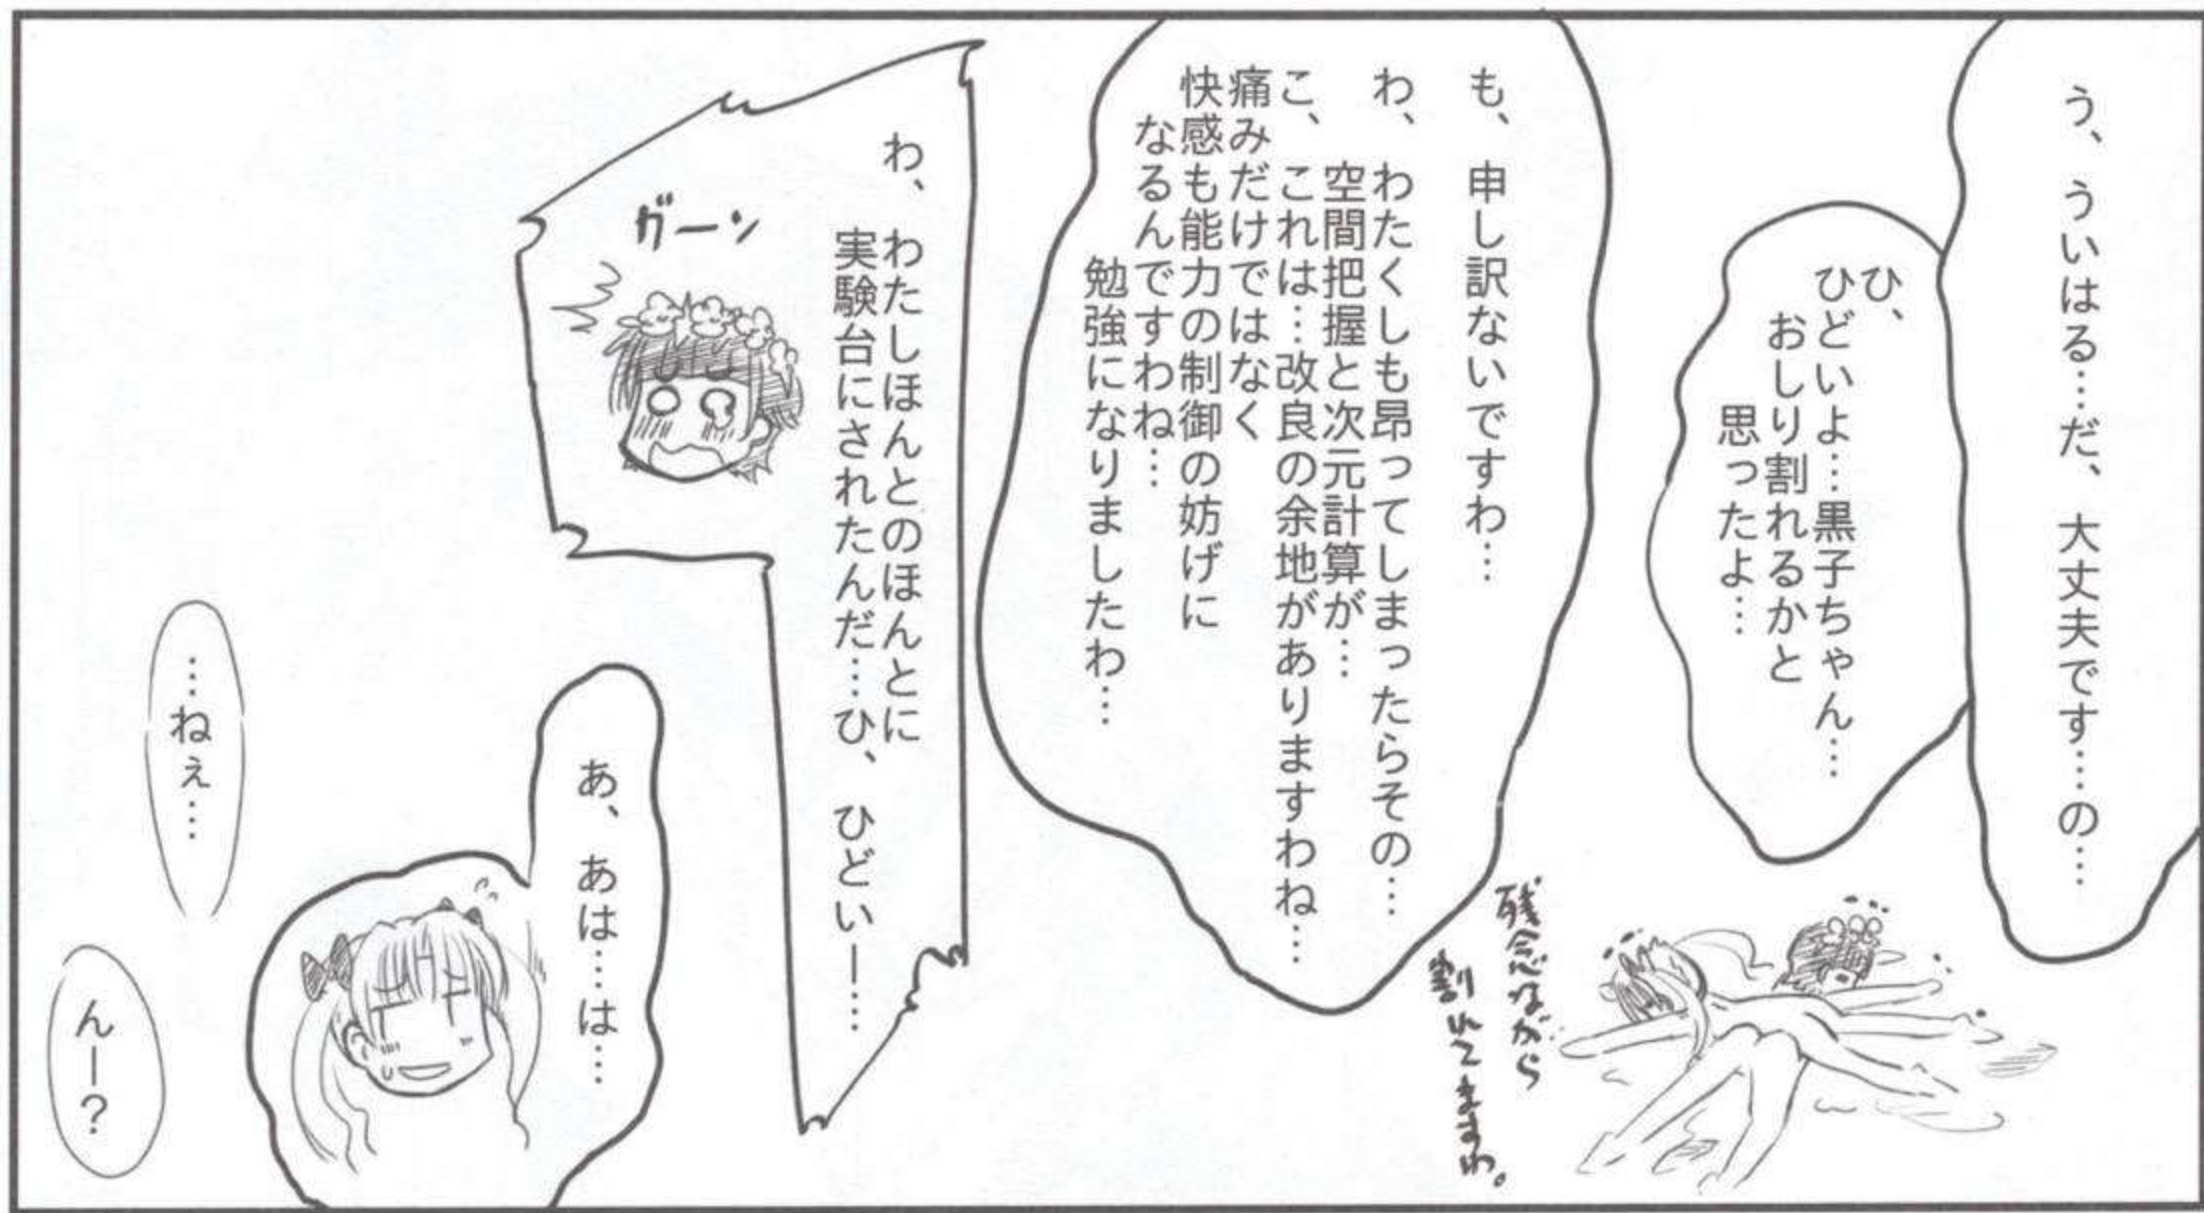 う、ういはる…だ、大丈夫です…の…
ひ、
ひどいよ…黒子ちゃん…
おしり割れるかと
思ったよ…
残念ながら
割れてますわ。
も、申し訳ないですわ…
わ、わたくしも昂ってしまったらその…
空間把握と次元計算が…
こ、これは…改良の余地がありますわね…
痛みだけではなく
快感も能力の制御の妨げに
なるんですわね…
勉強になりましたわ…
わ、わたしほんとのほんとに
実験台にされたんだ…ひ、ひどいー…
ガーン
あ、あは…は…
…ねぇ…
んー？